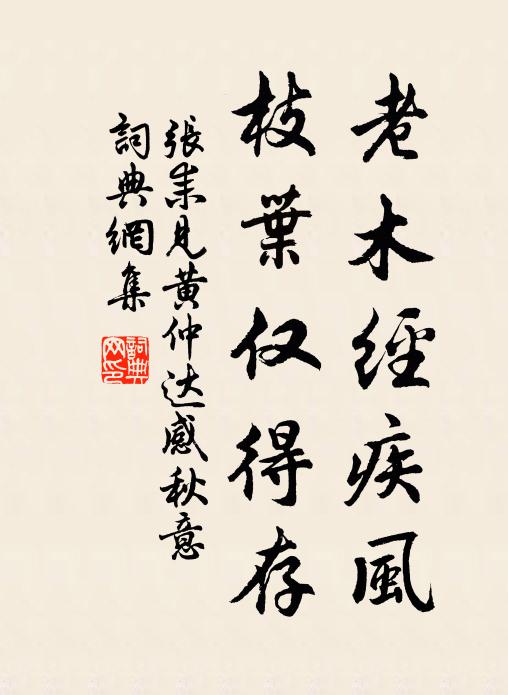 老木經疾風
枝葉仅得存
張耒見黄仲达感秋意
詞典網集
詞典网印